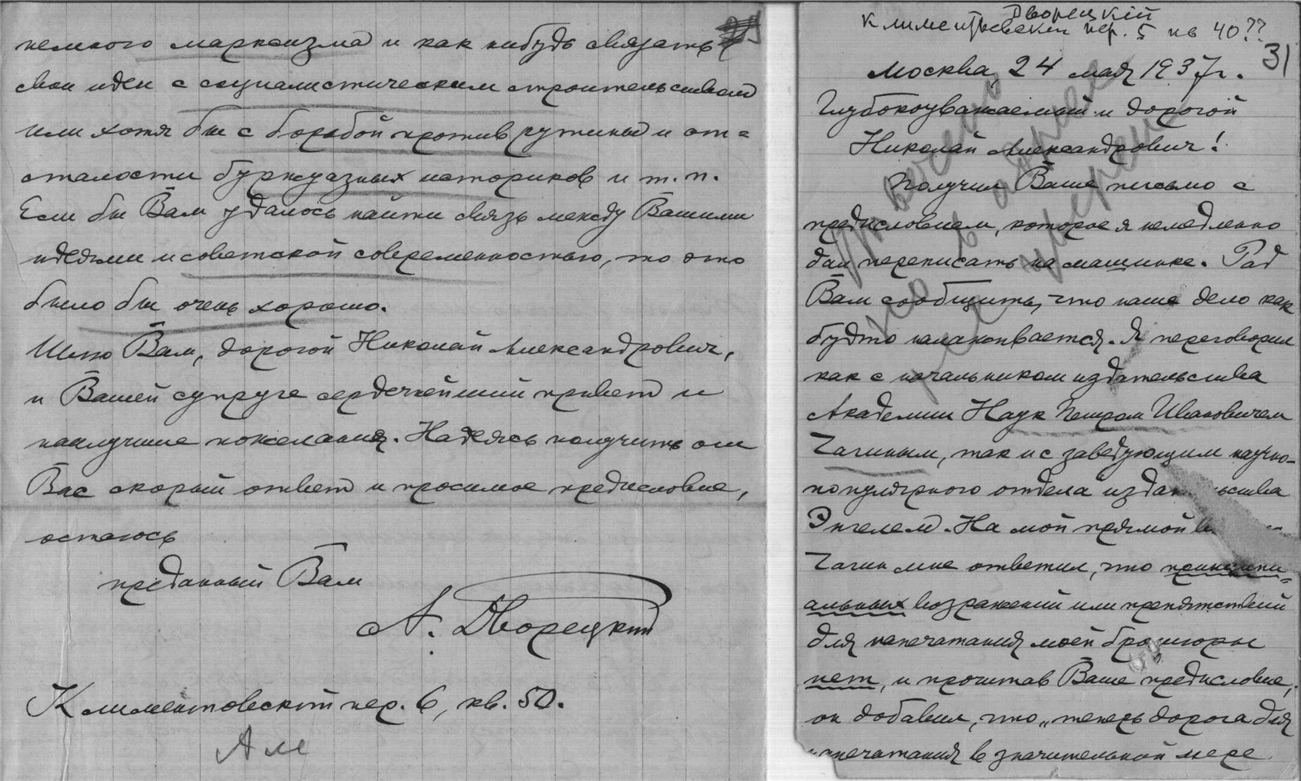 немного марксизма и как нибудь связать
свои идеи с социалистическим строительством
или хотя бы с борьбой против рутины и от=
сталости буржуазных историков и т.п.
Если бы Вам удалось найти связь между Вашими
идеями и советской современностью, то это
было бы очень хорошо.
Шлю Вам, дорогой Николай Александрович,
и Вашей супруге сердечнейший привет и
наилучшие пожелания. Надеясь получить от
Вас скорый ответ и просимое предисловие,
остаюсь
преданный Вам
А. Дворецкий
Климентовский пер. 6, кв. 50.
Дворецкий
Климентовский пер. 5 кв 40??
31
Москва, 24 мая 1937г.
Глубокоуважаемый и дорогой
Николай Александрович!
Получил Ваше письмо с
предисловием, которое я немедленно
дал переписать на машинке. Рад
Вам сообщить, что наше дело как
будто налаживается. Я переговорил
как с начальником издательства
Академии Наук Петром Ивановичем
Чагиным, так и с заведующим научно-
популярного отдела издательства
Энгелем. На мой прямой
Чагин мне ответил, что принципи-
альных возражений или препятствий
для напечатания моей брошюры
нет, и прочитав Ваше предисловие,
он добавил, что „теперь дорога для
напечатания в значительной мере